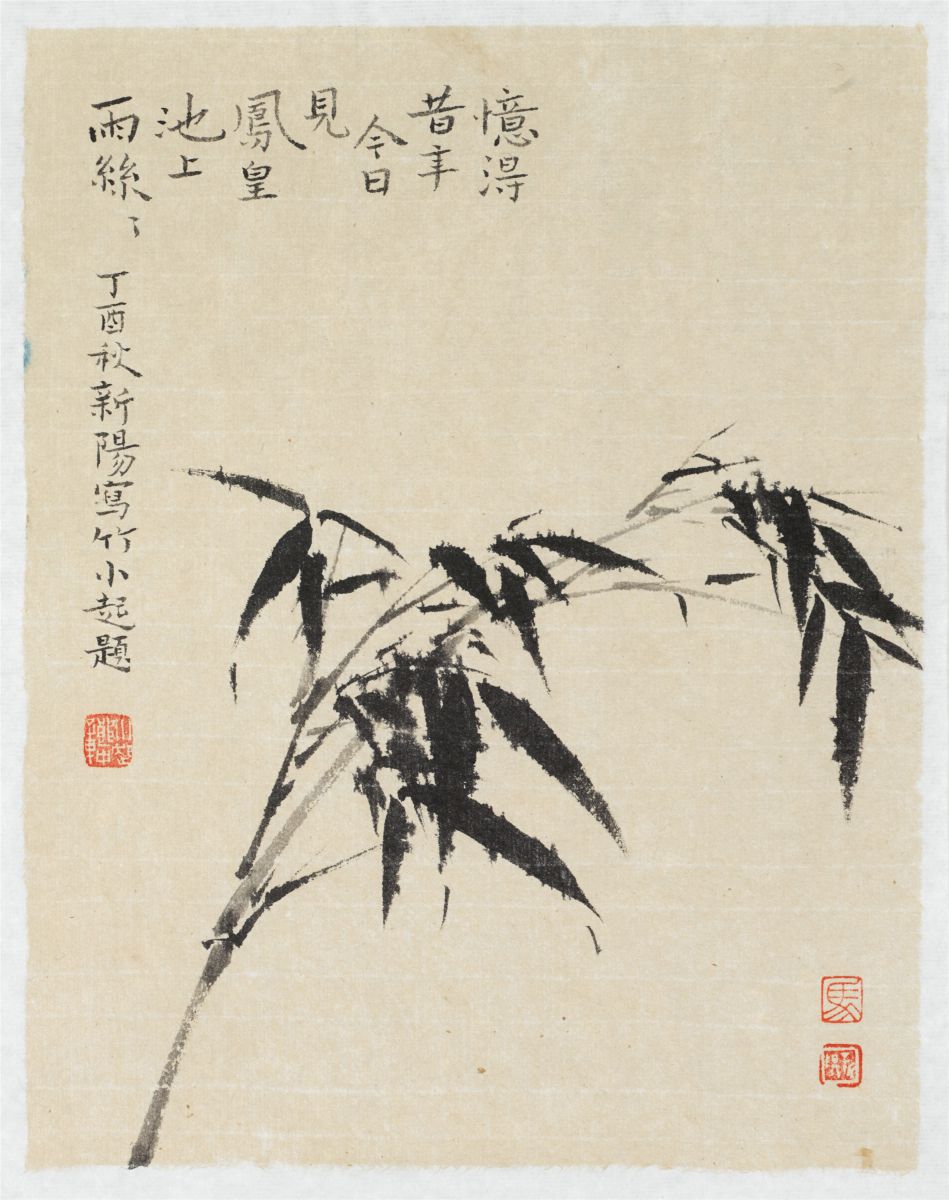 憶得
昔年
今日
見
鳳皇
池上
雨絲〻
丁酉秋新陽寫竹小起題
馬